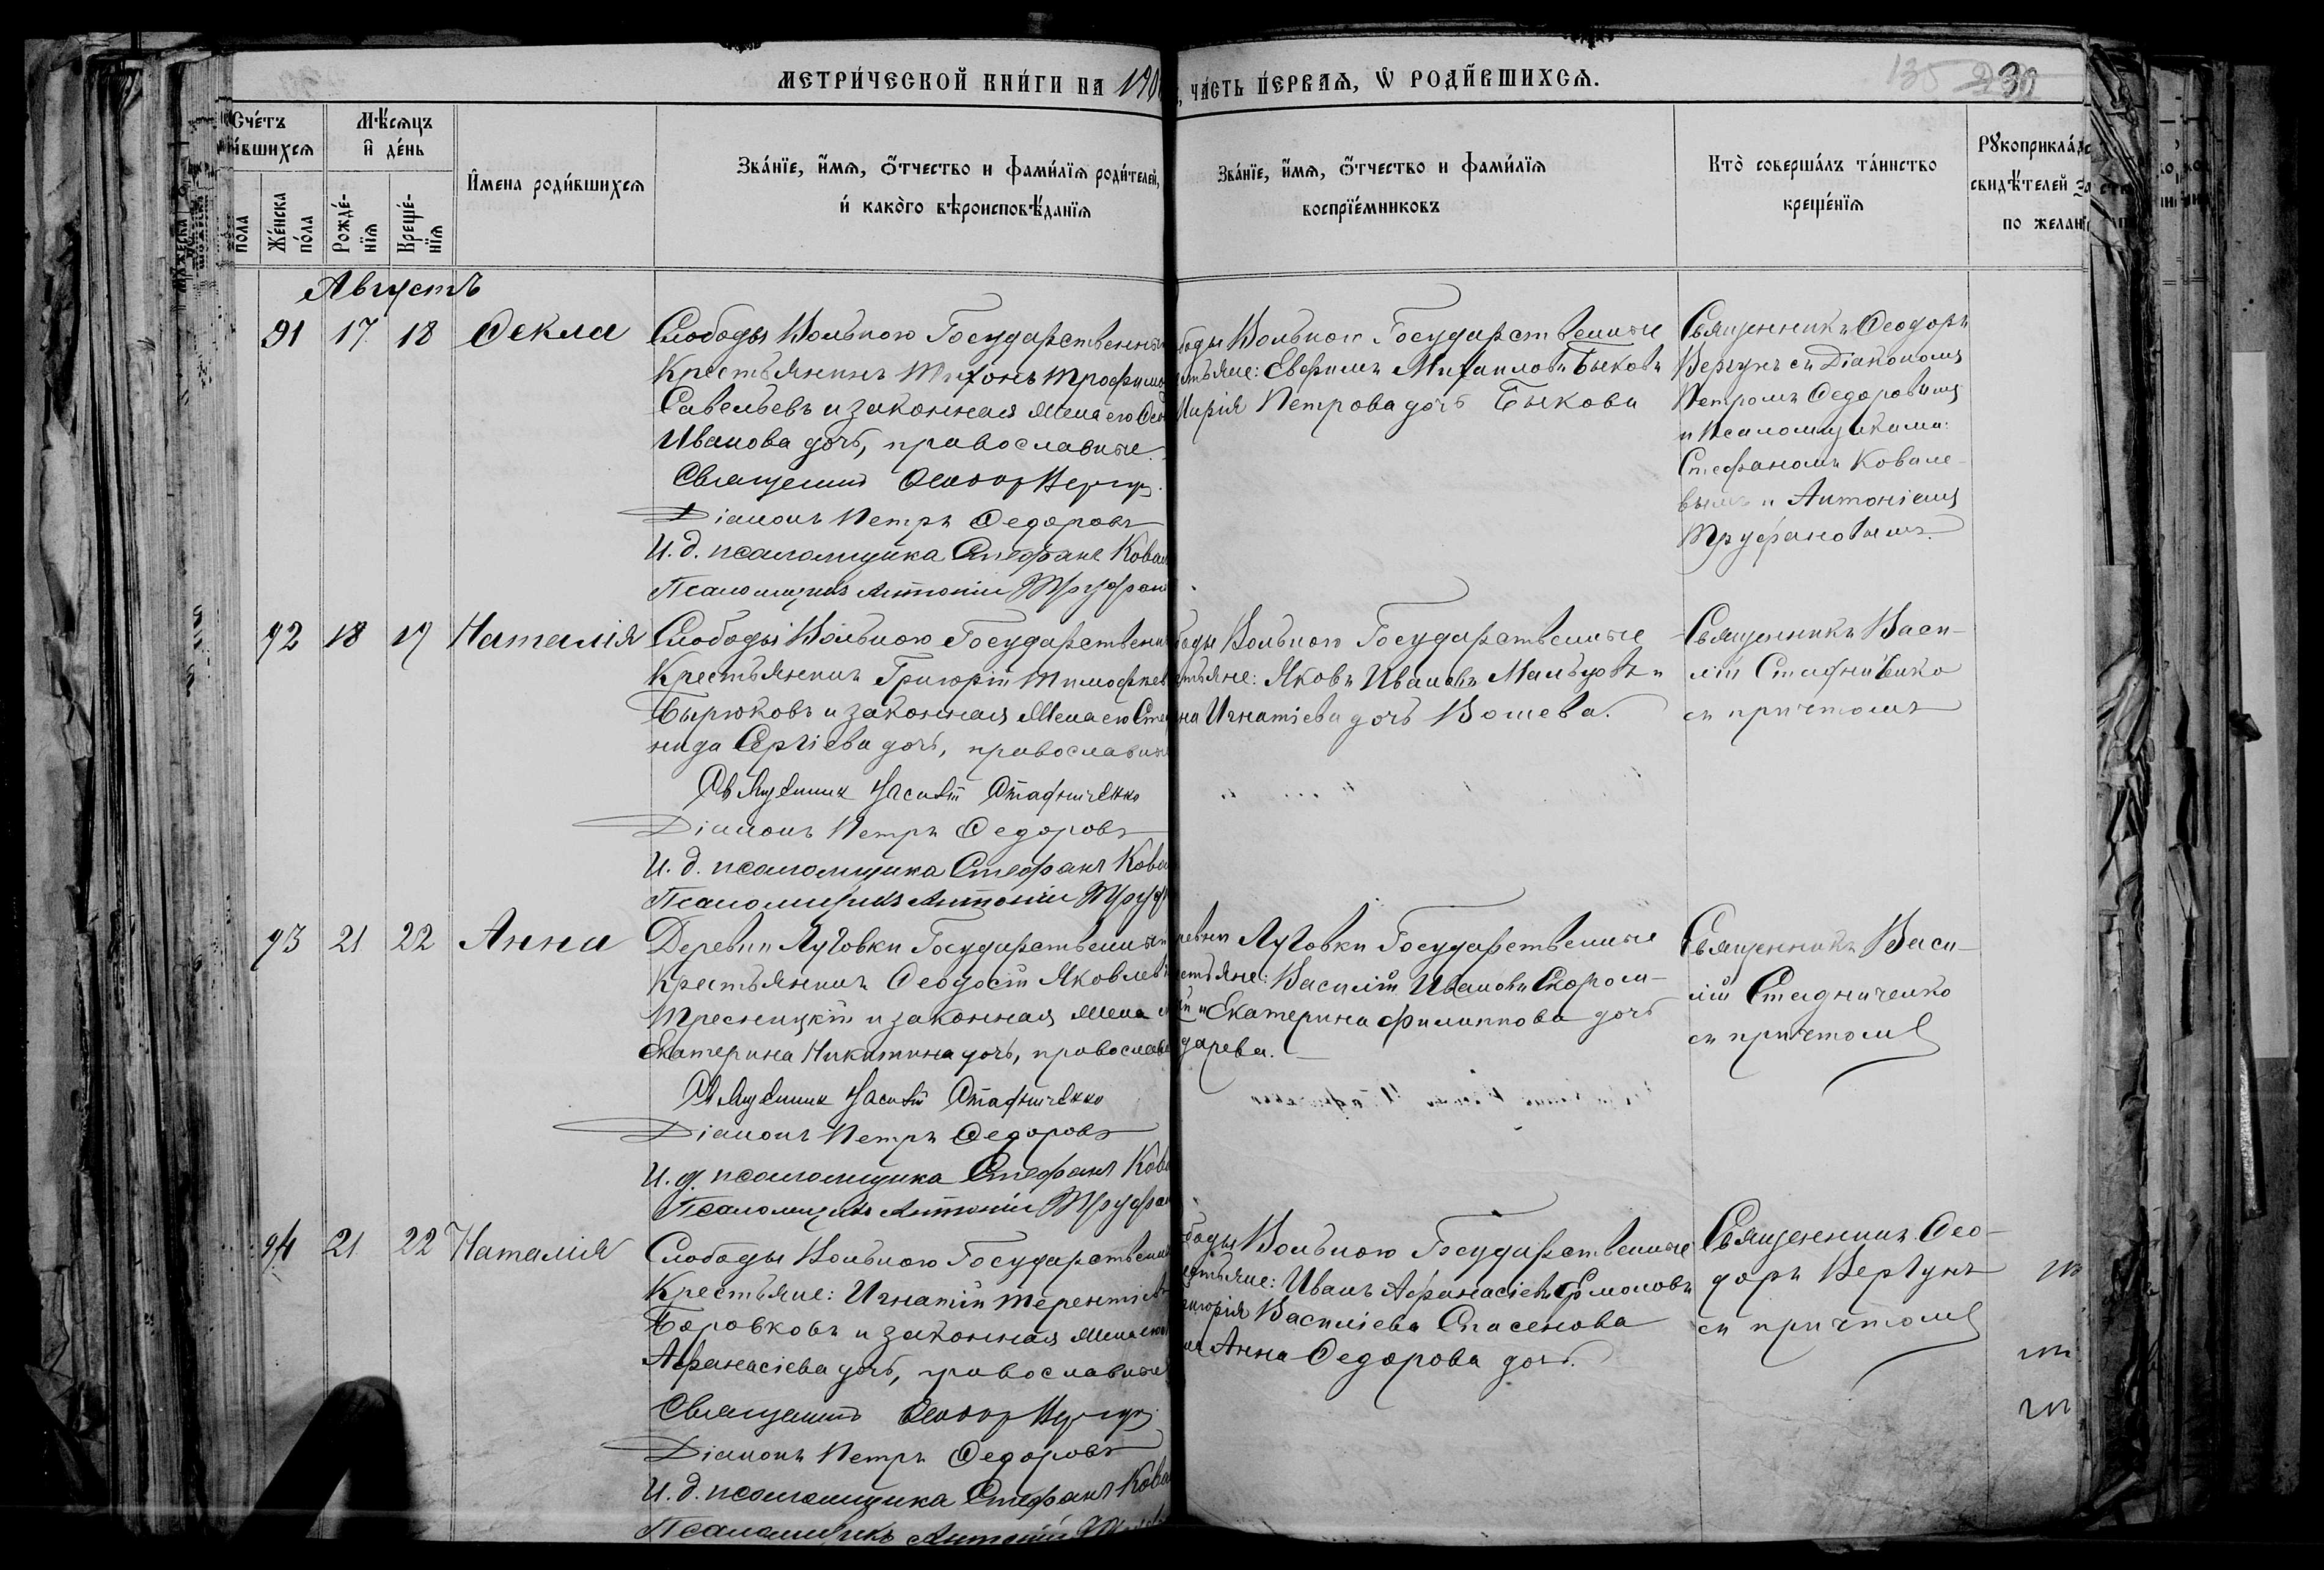 МЕТРИ́ЧЕСКОЙ КНИ́ГИ НА 190
, ЧА́СТЬ ПЕ́РВАЯ, Ѡ РОДИ́ВШИХСЯ.
135 230
Сче́тъ
и́вшихся
Мѣ́сяцъ
и де́нь
Имена роди́вшихся
Зва́нїе, и́мя, ѻ́тчество и фами́лїя роди́телей,
и како́го вѣроисповѣ́данїя
Зва́нїе, и́мя, ѻ́тчество и фами́лїя
воспрїе́мниковъ
Кто̀ соверша́лъ та́инство
креще́нїя
Рꙋкоприкла́дс
свидѣ́телей за
по желан
пола
Же́нска
по́ла
Рожде́-
нїя
Креще́-
нїя
Августъ
91 17 18 Ѳекла
Слободы Вольного Государственный
Крестьянинъ Тихонъ Трофимо
Савельевъ и законная жена его Ѳео
Иванова дочь, православные.
Священникъ Ѳеодоръ Вергунъ.
Діаконъ Петръ Ѳедоровъ
И. д. псаломщика Стефанъ Ковал
Псаломщикъ Антоній Труфан
боды Вольного Государственные
стьяне: Евфимъ Михаиловъ Быковъ
Марія Петрова дочь Быкова
Священникъ Ѳеодоръ
Вергунъ съ Діакономъ
Петромъ Ѳедоровымъ
и Псаломщиками:
Стефаномъ Ковале-
вымъ и Антоніемъ
Труфановымъ.
92 18 19 Наталія
Слободы Вольного Государственн
Крестьянинъ Григорій Тимофеев
Бырюковъ и законная жена его Сте
нида Сергіева дочь, православны
Священникъ Василій Стадниченко
Діаконъ Петръ Ѳедоровъ
И. д. псаломщика Стефанъ Кова
Псаломщикъ Антоній Труф
боды Вольного Государственные
стьяне: Яковъ Ивановъ Мальцовъ и
на Игнатіева дочь Вошева.
Священникъ Васи-
лій Стадниченко
съ причтомъ
93 21 22 Анна
Деревни Луговки Государственный
Крестьянинъ Ѳеодосій Яковлев
Тресницкій и законная жена
Екатерина Никитина дочь, православ
Священникъ Василій Стадниченко
Діаконъ Петръ Ѳедоровъ
И. д. псаломщика Стефанъ Кова
Псаломщикъ Антоній Труфан
ревни Луговки Государственные
стьяне: Василій Ивановъ Скором-
й и Екатерина Филиппова дочь
дарева.
Священникъ Васи-
лій Стадниченко
съ причтомъ
94 21 22 Наталія
Слободы Вольного Государственн
Крестьяне: Игнатій Терентіев
Боровковъ и законная жена его
Афанасіева дочь, православные
Священникъ Ѳеодоръ Вергунъ
Діаконъ Петръ Ѳедоровъ
И. д. псаломщика Стефанъ Кова
Псаломщикъ Антоній
боды Вольного Государственные
стьяне: Иванъ Афанасіевъ Ермоловъ
Василіева Спасенова
Анна Ѳедорова дочь.
Священникъ Ѳео-
доръ Вергунъ
съ причтомъ